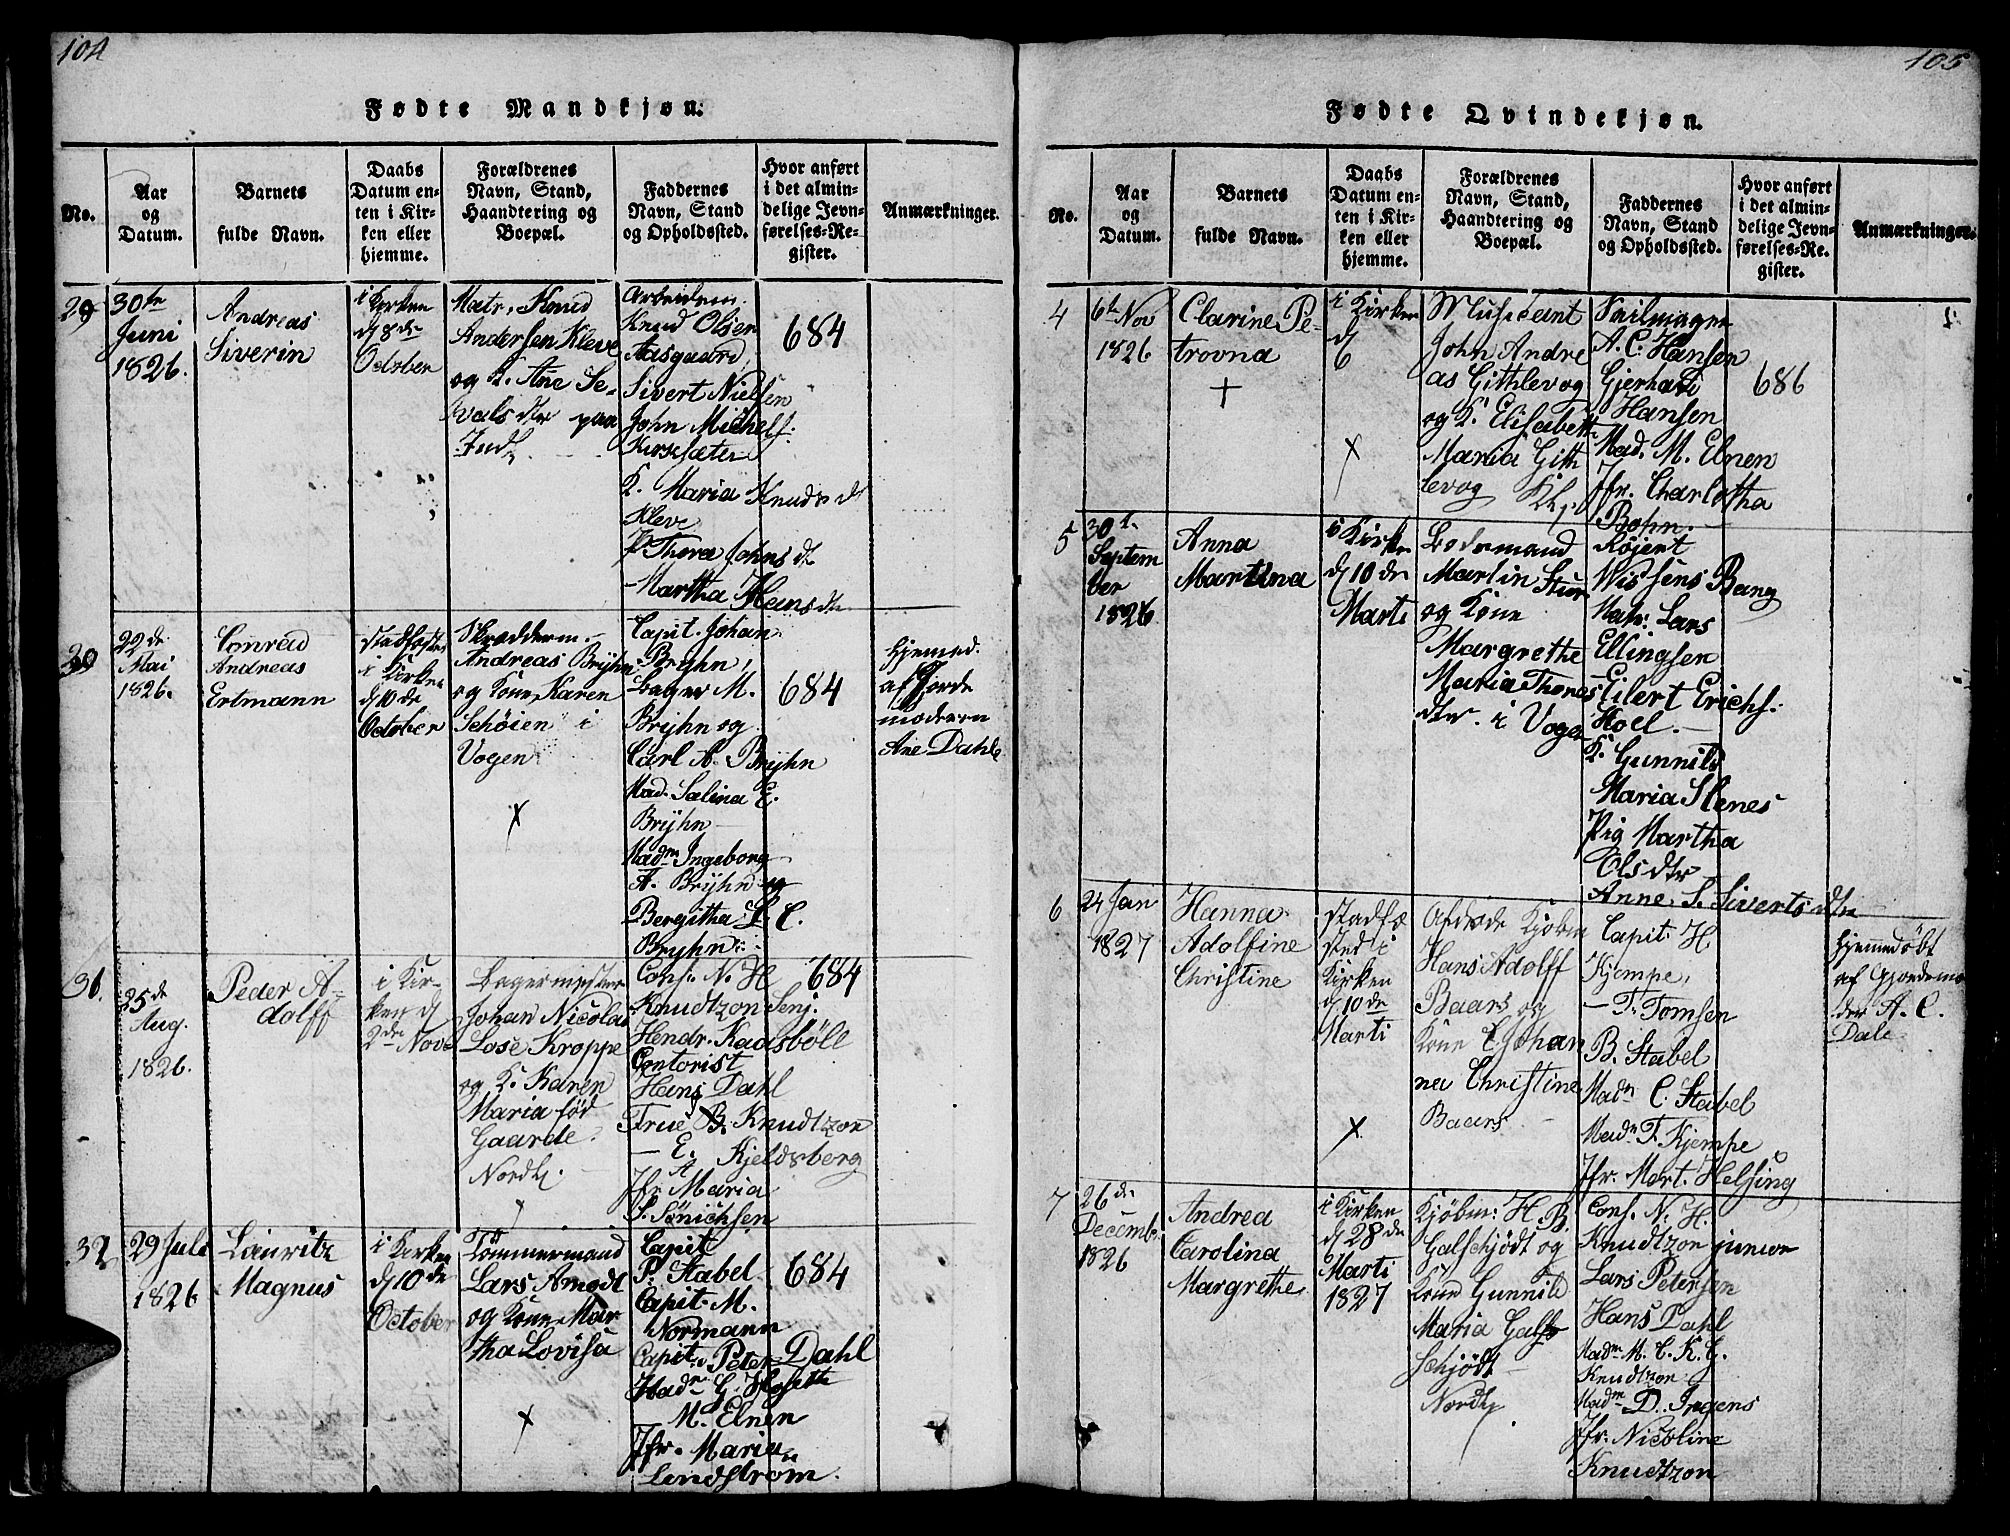 104
Fødte Mandkjøn.
No.
Aar
og
Datum.
Barnets
fulde Navn.
Daabs
Datum en-
ten i Kir-
ken eller
hjemme.
Forældrenes
Navn, Stand,
Haandtering og
Boepæl.
Faddernes
Navn, Stand
og Opholdssted.
Hvor anført
i det almin-
delige Jevn-
førelses-Re-
gister.
Anmærkninger.
29
30te
Juni
1826.
Andreas
Siverin
i Kirken
d 8de
October
Matr. Knud
Andersen Kleve
og K. Ane Se-
valsdtr paa
Indl.
Arbeidsm.
Knud Olsen
Aasgaard,
Sivert Nielsen
John Michels.
K. Maria Knudsdt
Kleve
P Thora Johnsdt
Martha Hansdtr
684
22de
Mai
1826.
Conrad
Andreas
Ertmann
stadfæstet
i Kirken
d 10de
October
Skredderm.
Andreas Bryhn
og Kone Karen
Schöien i
Vogen
Capit. Johan
Bryhn,
Bager M.
Bryhn og
Carl A. Bryhn
Mad. Salina E.
Bryhn
Madm Ingeborg
A. Bryhn og
Bergitha L C.
Bryhn.
684
Hjemmed.
af Jorde
moderen
Ane Dahl
31.
25de
Aug.
1826.
Peder A-
dolff
i Kir-
ken d
2de Nov
Bagermester
Johan Nicolai
Lose Kroppe
og K. Karen
Maria föd
Gaarde.
Nordl.
Cons. N. H
Knudtzon Senj.
Hendr. Kaasböll
Contorist
Hans Dahl
Frue B. Knudtzon
— E. Kjeldsberg
Jfr Maria
S. Sönichsen
684
32
29 Juli
1826
Lauritz
Magnus
i Kirken
d 10de
October
Tömmermand
Lars Amodt
og Kone Mar
tha Lovisa
Capit
P. Stabel
Capit. M.
Normann
Capit. Peter Dahl
Madm G. Hosetth
M. Elnen
Jfr. Maria
Lindström.
684
105
Fødte Qvindekjøn.
No.
Aar
og
Datum.
Barnets
fulde Navn.
Daabs
Datum en-
ten i Kir-
ken eller
hjemme.
Forældrenes
Navn, Stand,
Haandtering og
Boepæl.
Faddernes
Navn, Stand
og Opholdssted.
Hvor anført
i det almin-
delige Jevn-
førelses-Re-
gister.
Anmærkninger.
4
6te Nov
1826
Clarine Pe-
trovna
i Kirken
d
6
Musicant
John Andre
as Githlevog
og K. Elisabeth
Maria Gith
levog
Seilmager
A. C. Hansen
Gjerhart
Hansen
Mad. M. Elnen
Jfr. Charlotha
Bohn.
686
5
30t.
Septem
ber
1826
Anna
Martina
i Kirke
d 10de
Marti
Bodsmand
Martin Stur
og Kone
Margrethe
Maria Thores
dtr. i Vogen
Röjert
Wissens Bang
Matr. Lars
Ellingsen
Eilert Erichs.
Hoel.
K. Gunnild
Maria Stenes
Pig Martha
Olsdtr
Anne. S. Sivertsdtr
6
24 Jan
1827
Hanna
Adolfine
Christine
stadfæ
sted i
Kirken
d 10de
Marti
Afdöde Kjöbm
Hans Adolff
Baars og
Kone E Johan
na Christine
Baars
Capit. H
Kjempe,
— T. Tomsen
B. Stabel
Madm C. Stabel
Madm T. Kjempe
Jfr. Mart. Helsing
Hjemmedöbt
af Gjordemo
der A. C.
Dale
7
26de
Decemb
1826
Andrea
Carolina
Margrethe
i Kirken
d 28de
Marti
1827
Kjöbm: H. B.
Galschjödt og
Kone Gunnild
Maria Gals
schjödt
Nordl
Cons. N. H.
Knudtzon junior
Lars Petersen
Hans Dahl
Madm M. C. K. G.
Knudtzon
Madm D. Ingens
Jfr. Nicoline
Knudtzon